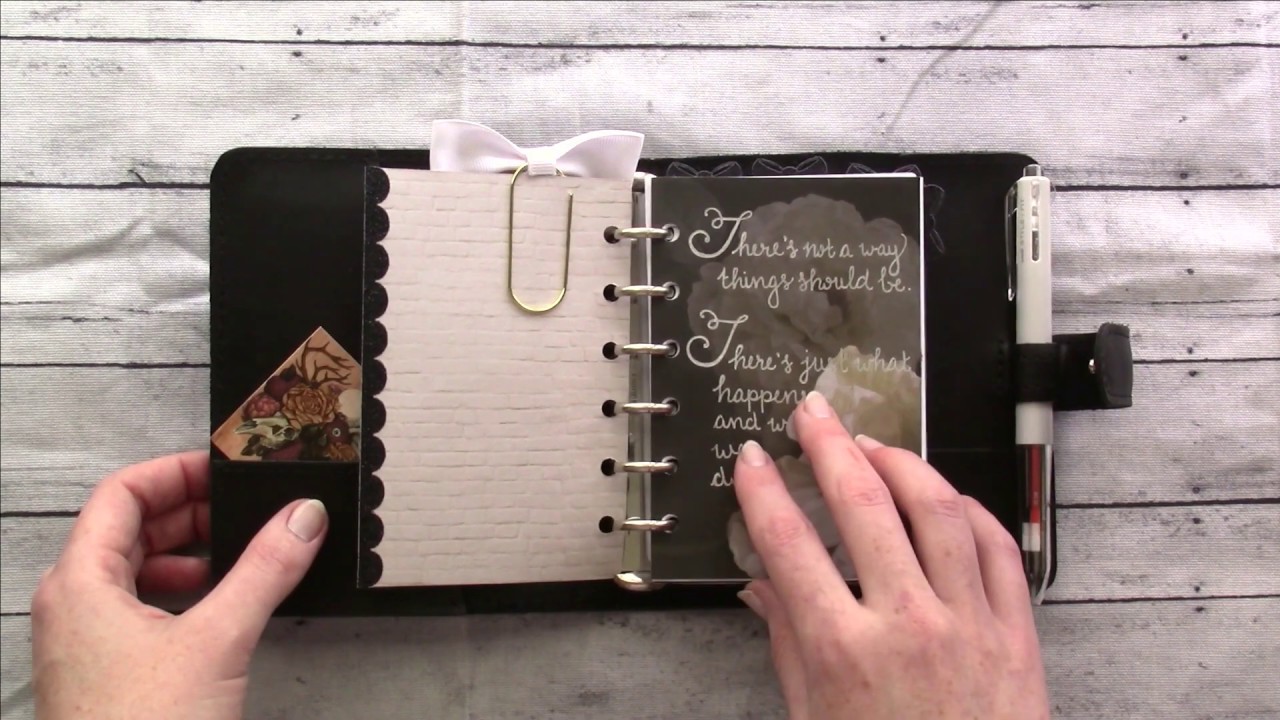 There's not a way
things should be.
There's just what
happens
and